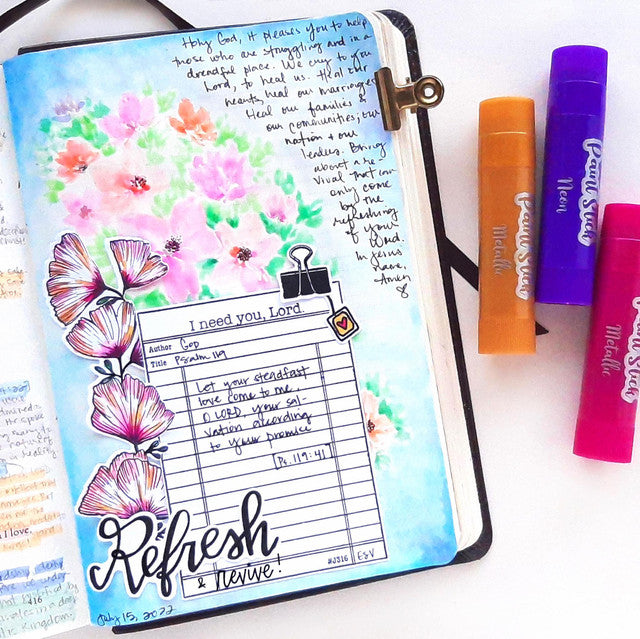 Holy God, it pleases you to help
those who are struggling and in a
dreadful place. We cry to you
Lord, to heal us. Heal our
hearts, heal our marriages
Heal our families &
our communities, our
nation & our
leaders. Bring
about a re-
vival that can
only come
by the
refreshing
of your
Word.
In Jesus
name,
Amen
I need you, Lord.
Author God
Title Psalm 119
Let your steadfast
love come to me.
O LORD, your sal-
vation according
to your promise
Ps. 119:41
Refresh
& revive!
#JS16 ESV
July 15, 2022
Paint Stick
Metallic
Paint Stick
Neon
Paint Stick
Metallic